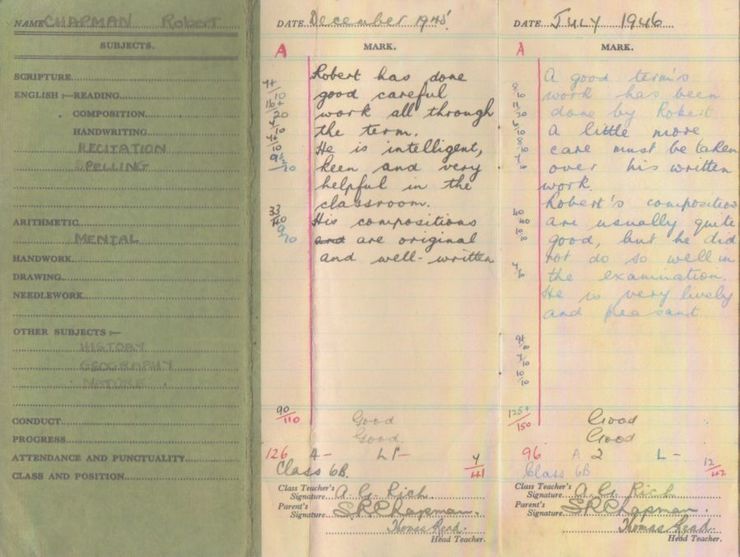 NAME CHAPMAN Robert
SUBJECTS.
SCRIPTURE
ENGLISH :— READING
COMPOSITION
HANDWRITING
RECITATION
SPELLING
ARITHMETIC
MENTAL
HANDWORK
DRAWING
NEEDLEWORK
OTHER SUBJECTS :—
HISTORY
GEOGRAPHY
NATURE
CONDUCT
PROGRESS
ATTENDANCE AND PUNCTUALITY
CLASS AND POSITION
DATE December 1945
A MARK.
Robert has done
good careful
work all through
the term.
He is intelligent,
keen and very
helpful in the
classroom.
His compositions
and are original
and well-written
33/40
90/110
Good
Good
126 A-
Class 6B. 4/41
Class Teacher's
Signature A. G. Rich
Parent's
Signature S R Chapman.
Thomas Read.
Head Teacher.
DATE JULY 1946
A MARK.
A good term's
work has been
done by Robert
A little more
care must be taken
over his written
work.
Robert's compositions
are usually quite
good, but he did
not do so well in
the examination.
He is very lively
and pleasant
Good
Good
96 A 2 L-
Class 6B 12/42
Class Teacher's
Signature A. G. Rich
Parent's
Signature S R Chapman.
Thomas Read.
Head Teacher.